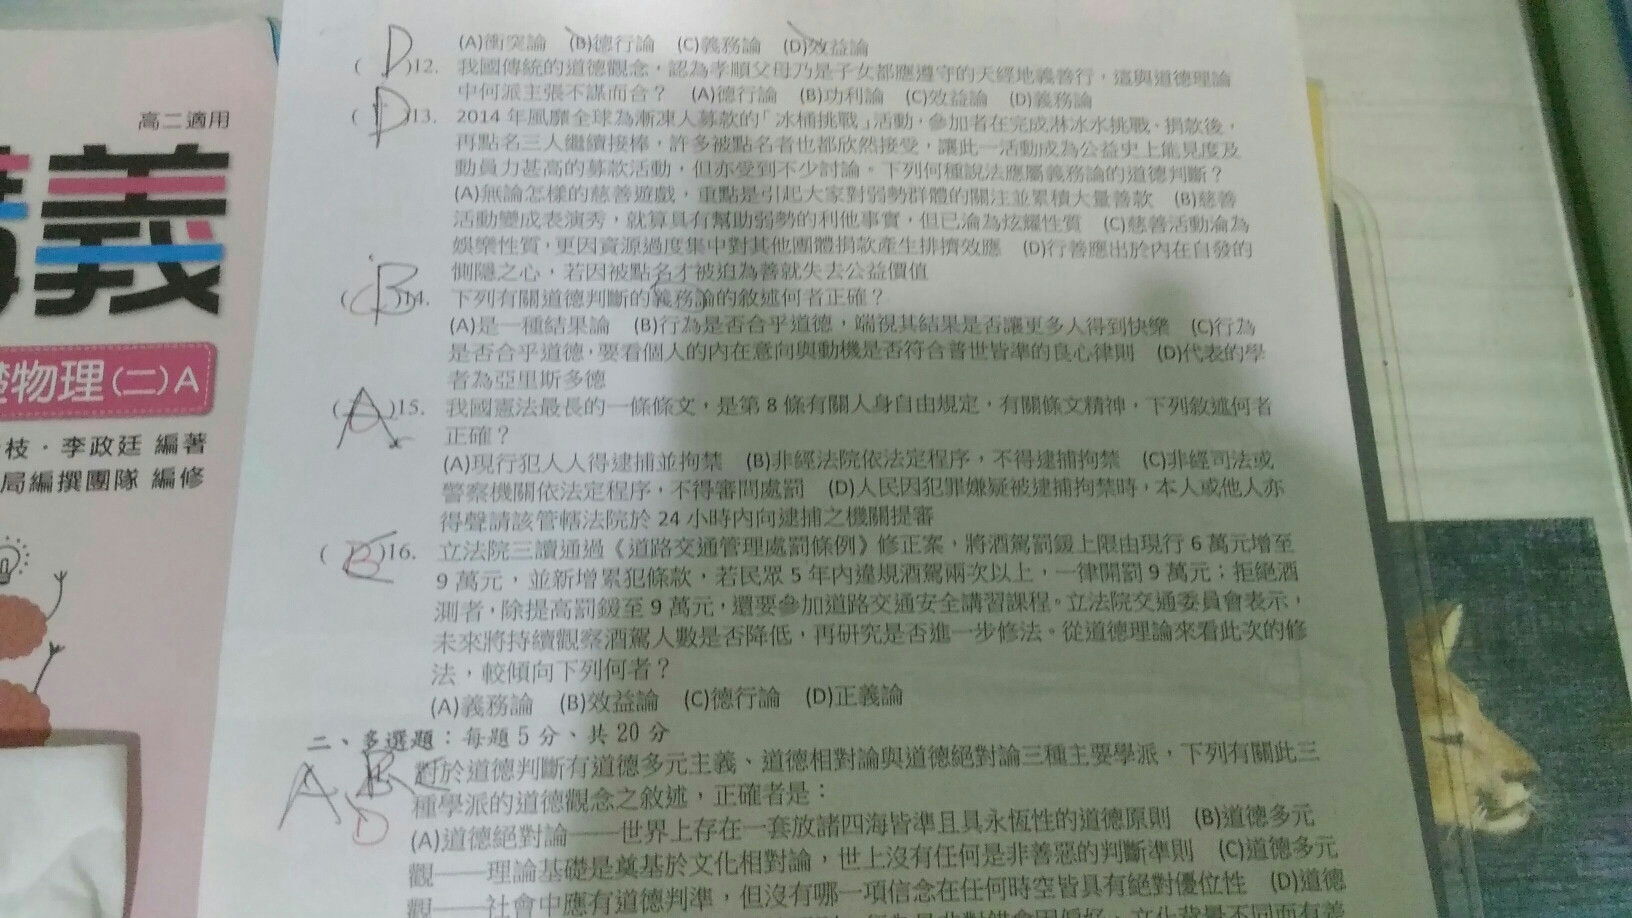 高二適用
講義
礎物理(二)A
枝·李政廷 編著
局編撰團隊 編修
(A)衝突論 (B)德行論 (C)義務論 (D)效益論
( D )12. 我國傳統的道德觀念,認為孝順父母乃是子女都應遵守的天經地義善行,這與道德理論
中何派主張不謀而合? (A)德行論 (B)功利論 (C)效益論 (D)義務論
( D )13. 2014年風靡全球為漸凍人募款的「冰桶挑戰」活動,參加者在完成淋冰水挑戰、捐款後,
再點名三人繼續接棒,許多被點名者也都欣然接受,讓此一活動成為公益史上能見度及
動員力甚高的募款活動,但亦受到不少討論。下列何種說法應屬義務論的道德判斷?
(A)無論怎樣的慈善遊戲,重點是引起大家對弱勢群體的關注並累積大量善款 (B)慈善
活動變成表演秀,就算具有幫助弱勢的利他事實,但已淪為炫耀性質 (C)慈善活動淪為
娛樂性質,更因資源過度集中對其他團體捐款產生排擠效應 (D)行善應出於內在自發的
惻隱之心,若因被點名才被迫為善就失去公益價值
( B )14. 下列有關道德判斷的義務論的敘述何者正確?
(A)是一種結果論 (B)行為是否合乎道德,端視其結果是否讓更多人得到快樂 (C)行為
是否合乎道德,要看個人的內在意向與動機是否符合普世皆準的良心律則 (D)代表的學
者為亞里斯多德
( A )15. 我國憲法最長的一條條文,是第8條有關人身自由規定,有關條文精神,下列敘述何者
正確?
(A)現行犯人人得逮捕並拘禁 (B)非經法院依法定程序,不得逮捕拘禁 (C)非經司法或
警察機關依法定程序,不得審問處罰 (D)人民因犯罪嫌疑被逮捕拘禁時,本人或他人亦
得聲請該管轄法院於24小時內向逮捕之機關提審
( B )16. 立法院三讀通過《道路交通管理處罰條例》修正案,將酒駕罰鍰上限由現行6萬元增至
9萬元,並新增累犯條款,若民眾5年內違規酒駕兩次以上,一律開罰9萬元;拒絕酒
測者,除提高罰鍰至9萬元,還要參加道路交通安全講習課程。立法院交通委員會表示,
未來將持續觀察酒駕人數是否降低,再研究是否進一步修法。從道德理論來看此次的修
法,較傾向下列何者?
(A)義務論 (B)效益論 (C)德行論 (D)正義論
二、多選題:每題5分、共20分
A B D 對於道德判斷有道德多元主義、道德相對論與道德絕對論三種主要學派,下列有關此三
種學派的道德觀念之敘述,正確者是:
(A)道德絕對論——世界上存在一套放諸四海皆準且具永恆性的道德原則 (B)道德多元
觀——理論基礎是奠基於文化相對論,世上沒有任何是非善惡的判斷準則 (C)道德多元
觀——社會中應有道德判準,但沒有哪一項信念在任何時空皆具有絕對優位性 (D)道德